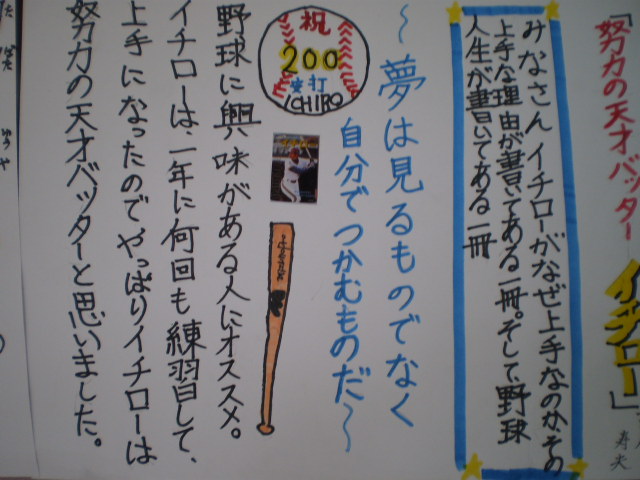 「努力の天才バッター
イチロー」
寿夫
みなさんイチローがなぜ上手なのか、その
上手な理由が書いてある一冊。そして、野球
人生が書いてある一冊
〜夢は見るものでなく
自分でつかむものだ〜
祝
200
安打
ICHIRO
野球に興味がある人にオススメ。
イチローは、一年に何回も練習して、
上手になったのでやっぱりイチローは
努力の天才バッターと思いました。